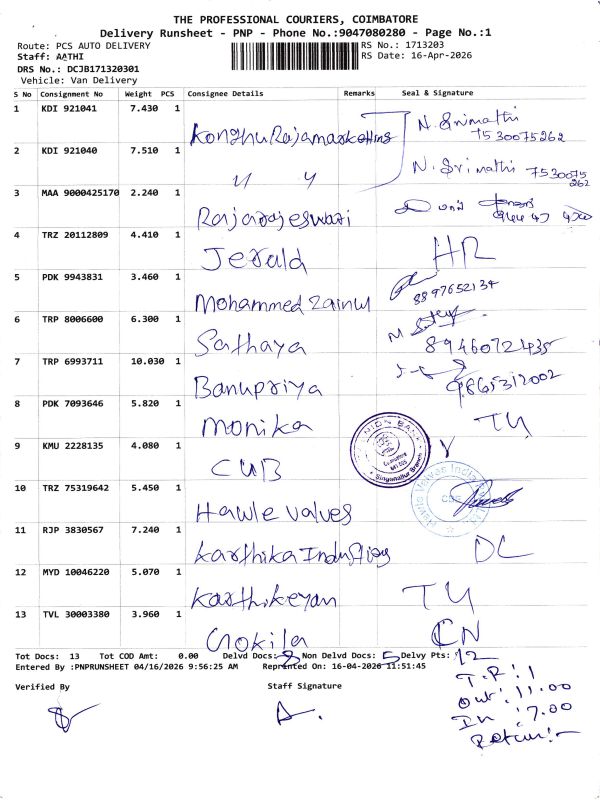 THE PROFESSIONAL COURIERS, COIMBATORE
Delivery Runsheet - PNP - Phone No.:9047080280 - Page No.:1
Route: PCS AUTO DELIVERY
RS No.: 1713203
Staff: AATHI
RS Date: 16-Apr-2026
DRS No.: DCJB171320301
Vehicle: Van Delivery
S No Consignment No Weight PCS Consignee Details Remarks Seal & Signature
1 KDI 921041 7.430 1 KonghuRajamarketting N. Srimathi
7530075262
2 KDI 921040 7.510 1 " " N. Srimathi 7530075
262
3 MAA 9000425170 2.240 1 Rajarajeswari
4 TRZ 20112809 4.410 1 Jerald HR
5 PDK 9943831 3.460 1 Mohammed Zainul 8897652134
6 TRP 8006600 6.300 1 Sathaya 89460721435
7 TRP 6993711 10.030 1 Banupriya 9865312002
8 PDK 7093646 5.820 1 Monika TU
9 KMU 2228135 4.080 1 CUB
10 TRZ 75319642 5.450 1 Hawle valves
11 RJP 3830567 7.240 1 Karthika Industries DC
12 MYD 10046220 5.070 1 Karthikeyan TU
13 TVL 30003380 3.960 1 Gokila CN
Tot Docs: 13 Tot COD Amt: 0.00 Delvd Docs: 8 Non Delvd Docs: 5 Delvy Pts: 12
Entered By :PNPRUNSHEET 04/16/2026 9:56:25 AM Reprinted On: 16-04-2026 11:51:45
Verified By Staff Signature
T.R: 1
Out: 11.00
In: 7.00
Return: -